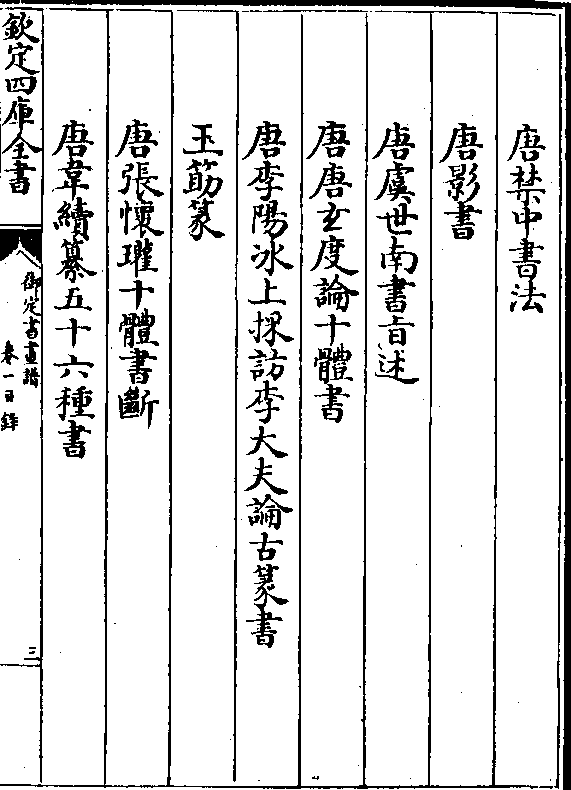 唐禁中書法
唐影書
唐虞世南書旨述
唐唐玄度論十體書
唐李陽冰上採訪李大夫論古篆書
玉筯篆
唐張懷瓘十體書斷
唐韋續纂五十六種書
欽定四庫全書
御定書畫譜
卷一目錄
三